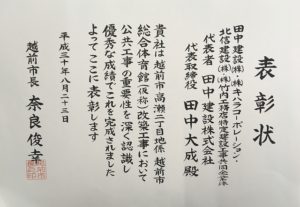 表彰状
田中建設(株)・(株)キハラコーポレーション・
北信建設(株)・(株)竹内工務店特定建設工事共同企業体
代表者 田中建設株式会社
代表取締役 田中大成殿
貴社は越前市高瀬二丁目地係越前市
総合体育館(仮称)改築工事において
公共工事の重要性を深く認識し
優秀な成績でこれを完成されました
よってここに表彰します
平成三十年八月二十三日
越前市長 奈良俊幸